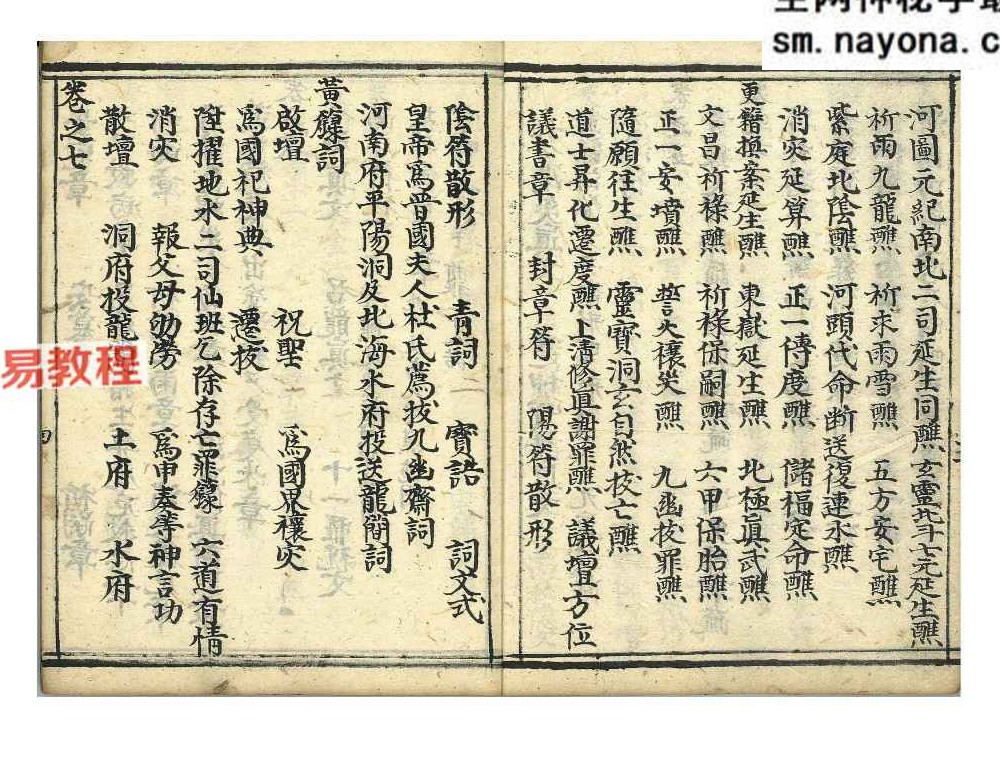 sm.nayona.c
河圖元紀南北二司延生同醮 玄靈北斗七元延生醮
祈雨九龍醮 祈求雨雪醮 五方安宅醮
紫庭北陰醮 河頭代命斷送復連水醮
消灾延算醮 正一傳度醮 儲福定命醮
更籍換案延生醮 東嶽延生醮 北極真武醮
文昌祈祿醮 祈祿保嗣醮 六甲保胎醮
正一安墳醮 誓火禳灾醮 九幽拔罪醮
隨願往生醮 靈寶洞玄自然拔亡醮
道士昇化遷度醮 上清修真謝罪醮 議壇方位
議書章 封章符 陽符散形
陰符散形 青詞 寶誥 詞文式
皇帝為晉國夫人杜氏薦拔九幽齋詞
河南府平陽洞及北海水府投送龍簡詞
黃籙詞
啟壇 祝聖 為國界禳灾
為國祀神典 遷拔
陞擢地水二司仙班乞除存亡罪籙 六道有情
消灾 報父母劬勞 為申奏等神言功
散壇 洞府投龍 土府 水府
卷之七
易教程